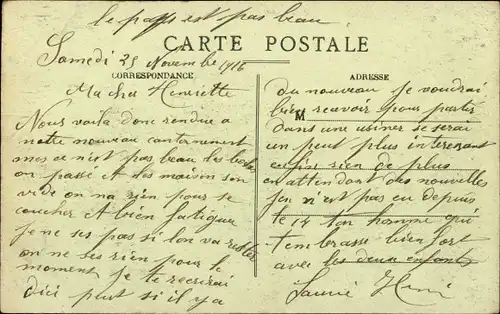 le pays est pas beau
Samedi 25 Novembre 1916
CARTE POSTALE
CORRESPONDANCE
Ma cher Henriette
Nous voila donc rendue a
notre nouveau cantonnement
mes ce n'est pas beau les boches
on passé A des maison son
vide on na rien pour se
coucher A bien fatiguer
je ne ses pas si lon va rester
on ne ses rien pour le
moment je te recrirai
dici peut si il y a
ADRESSE
M
du nouveau je voudrai
bien recevoir pour partir
dans une usiner se serai
un peut plus interesant
enfin rien de plus
en attendant des nouvelles
jen n'est pas eu depuis
le 14 ton homme qui
t'embrasse bien fort
avec les deux enfants